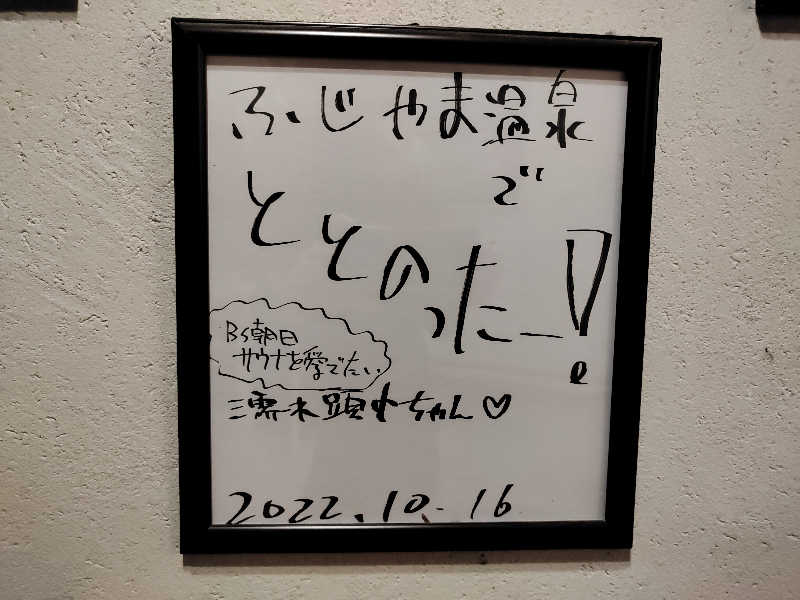 ふじやま温泉
で
ととのったー!
BS朝日
サウナを愛でたい
濡れ頭巾ちゃん♡
2022.10.16